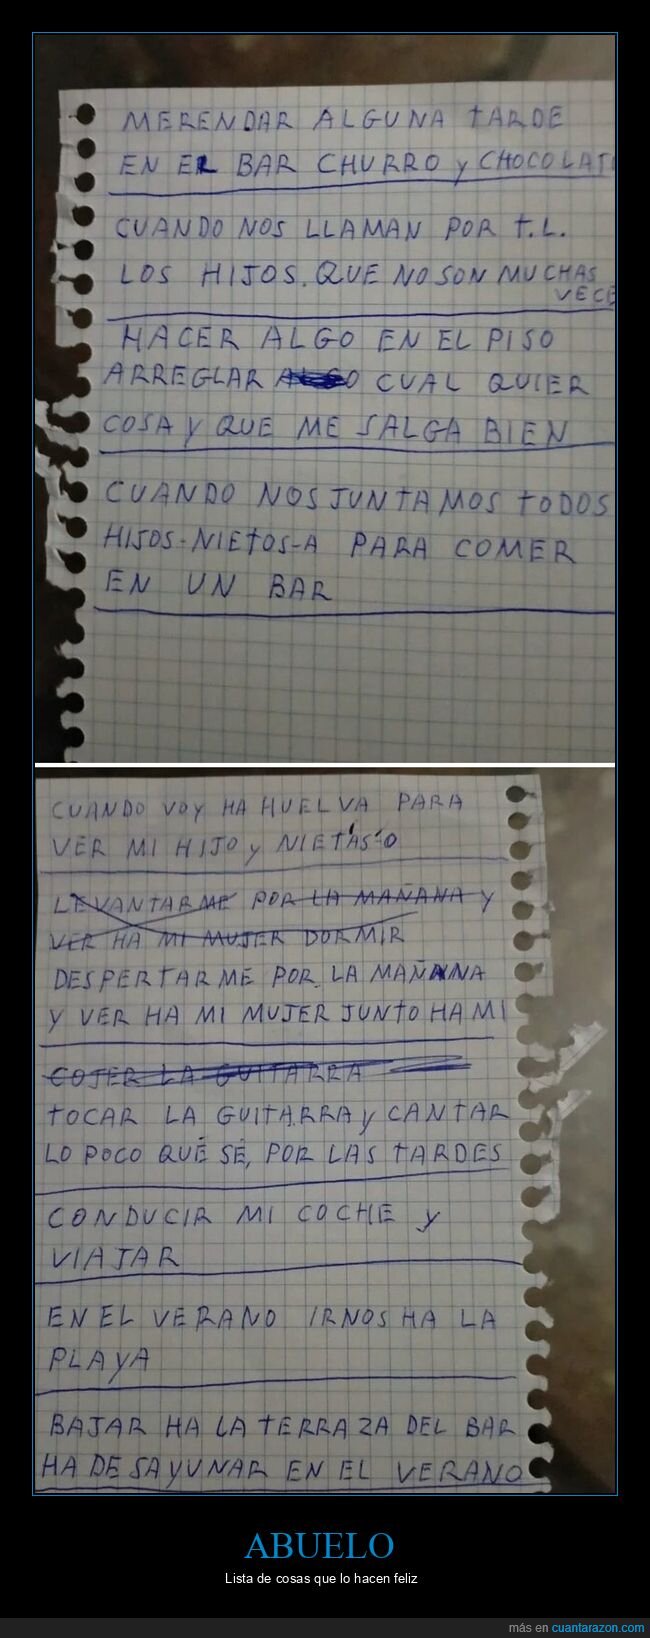 MERENDAR ALGUNA TARDE
EN EL BAR CHURRO Y CHOCOLAT
CUANDO NOS LLAMAN POR T.L.
LOS HIJOS. QUE NO SON MUCHAS
VECE
HACER ALGO EN EL PISO
ARREGLAR ALGO CUAL QUIER
COSA Y QUE ME SALGA BIEN
CUANDO NOS JUNTAMOS TODOS
HIJOS-NIETOS-A PARA COMER
EN UN BAR
CUANDO VOY HA HUELVA PARA
VER MI HIJO Y NIETAS-O
LEVANTARME POR LA MAÑANA Y
VER HA MI MUJER DORMIR
DESPERTARME POR LA MAÑANA
Y VER HA MI MUJER JUNTO HA MI
COJER LA GUITARRA
TOCAR LA GUITARRA Y CANTAR
LO POCO QUÉ SÉ, POR LAS TARDES
CONDUCIR MI COCHE Y
VIAJAR
EN EL VERANO IRNOS HA LA
PLAYA
BAJAR HA LA TERRAZA DEL BAR
HA DESAYUNAR EN EL VERANO
ABUELO
Lista de cosas que lo hacen feliz
más en cuantarazon.com